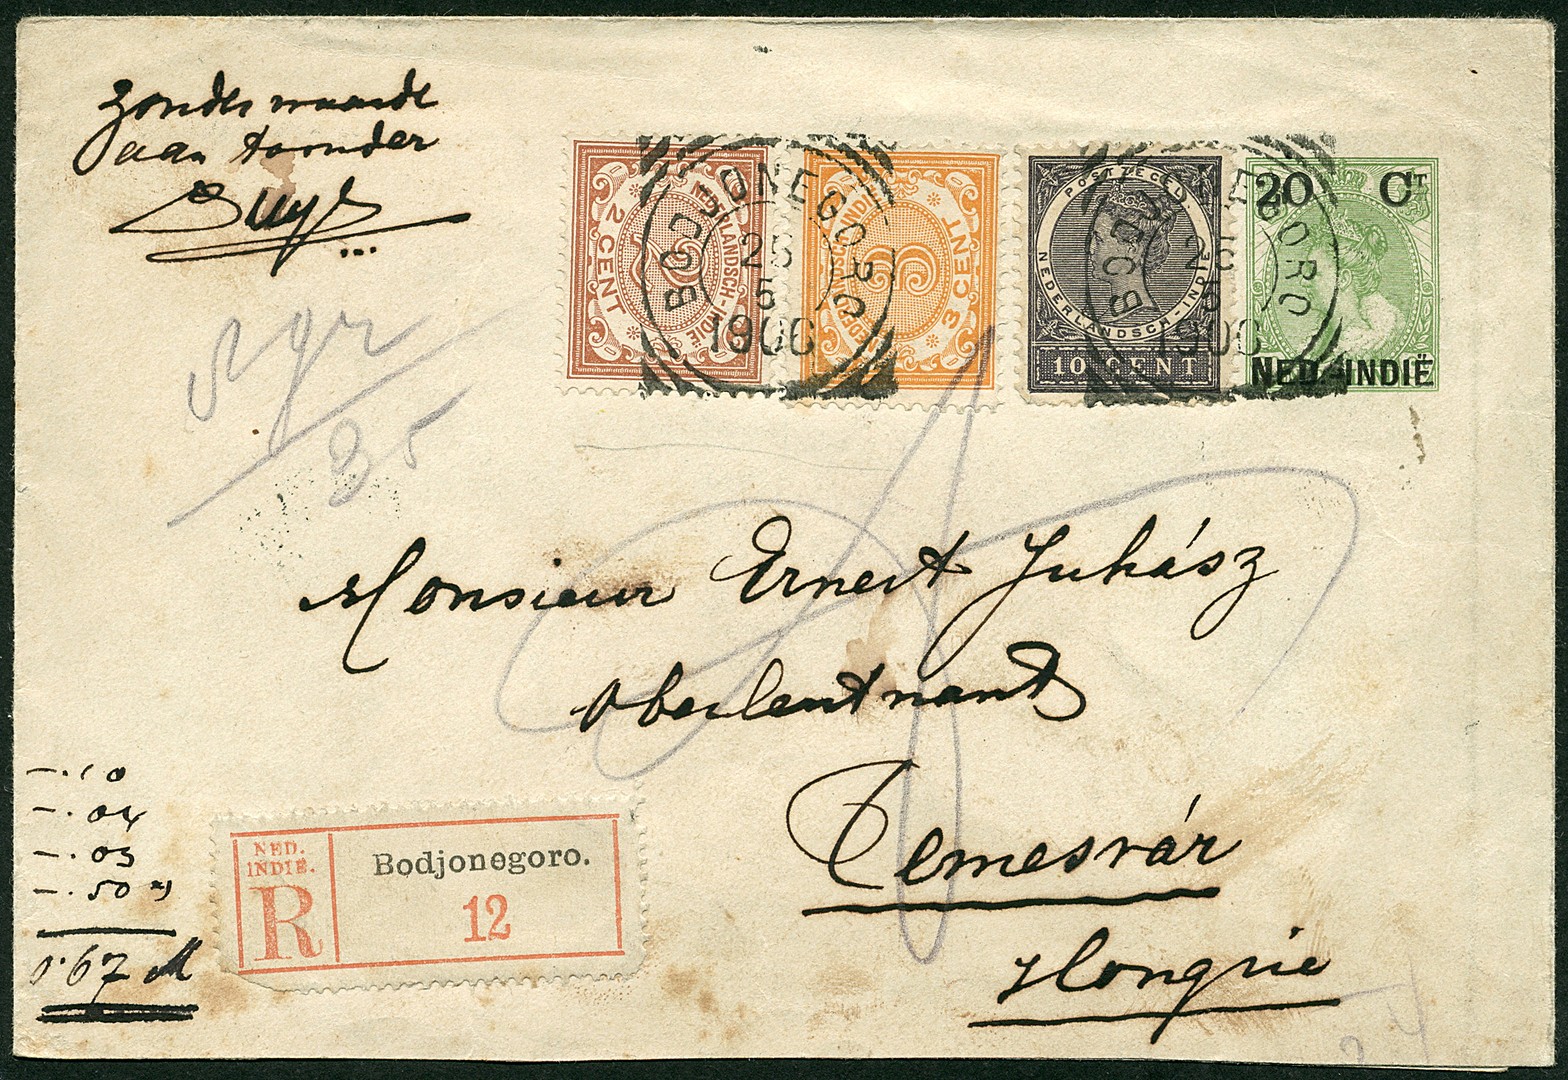 Zonder waarde
aan toonder
2 CENT
NEDERLANDSCH-INDIE
2
3 CENT
NEDERLANDSCH-INDIE
3
POSTZEGEL
NEDERLANDSCH-INDIE
10 CENT
20 CT
NED-INDIË
BODJONEGORO
25
5
1906
BODJONEGORO
25
5
1906
35
Monsieur Ernest Juhász
Oberlentnant
Temesvár
Hongrie
-.10
-.04
-.03
-.50
0.67
NED.
INDIË.
R
Bodjonegoro.
12